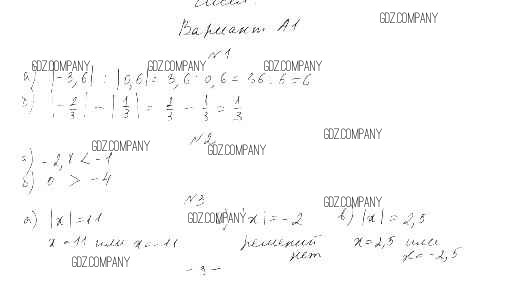 Вариант А1
GDZ.COMPANY
N1
GDZ.COMPANY GDZ.COMPANY GDZ.COMPANY
а) |-3,6| : |0,6| = 3,6 : 0,6 = 36 : 6 = 6
б) |-2/3| - |1/3| = 2/3 - 1/3 = 1/3
GDZ.COMPANY
N2
GDZ.COMPANY GDZ.COMPANY
а) -2,4 < -1
б) 0 > -4
N3
GDZ.COMPANY
а) |x| = 11 GDZ.COMPANY |x| = -2 в) |x| = 2,5
x = 11 или x = -11 решений нет x = 2,5 или x = -2,5
GDZ.COMPANY
- 3 -